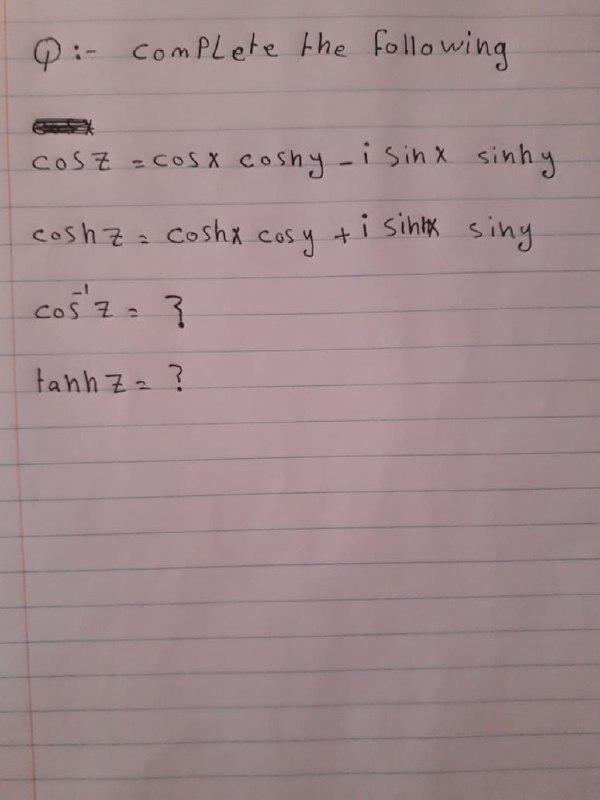 Q:- complete the following
cos z = cos x cosh y - i sin x sinh y
cosh z = cosh x cos y + i sinh x sin y
cos⁻¹ z = ?
tanh z = ?